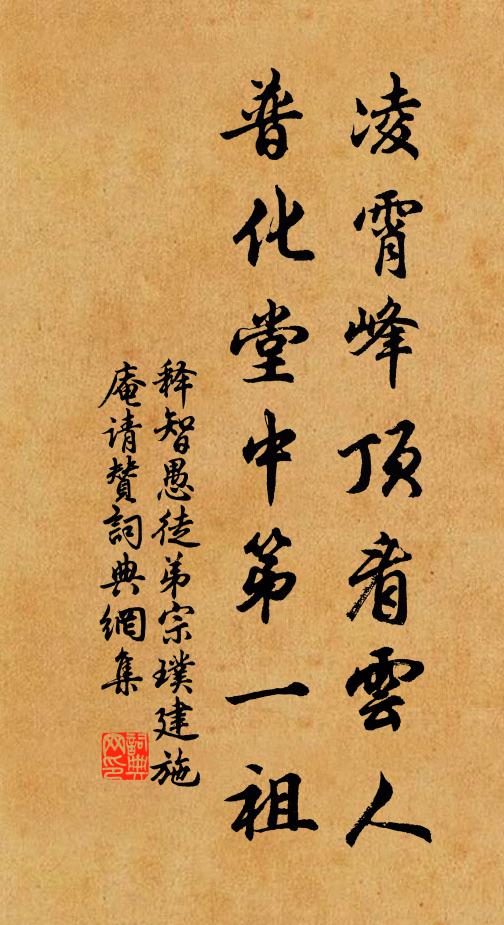 凌霄峰頂看雲人
普化堂中第一祖
释智愚徒弟宗璞建施
庵请赞詞典網集
詞典網印